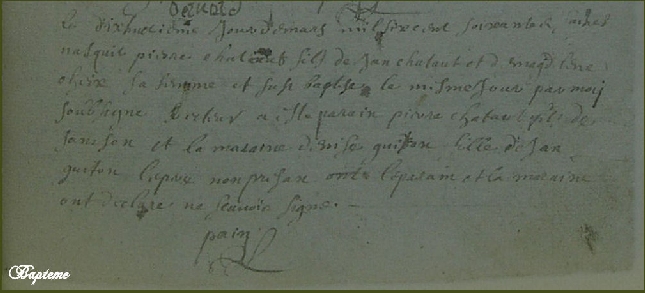 Le dixhuitiême Jour de mars mil six cent soixante
nasquit pierre chataut fils de Jan chataut et de magdelene
sa femme et fust baptisé le mesme Jour par moy
soubsigné Recteur parain pierre chataut fils de
et la maraine denise guiton fille de Jan
guiton le pere non presan le parain et la maraine
ont declare ne scavoir signe.
pain
Bapteme